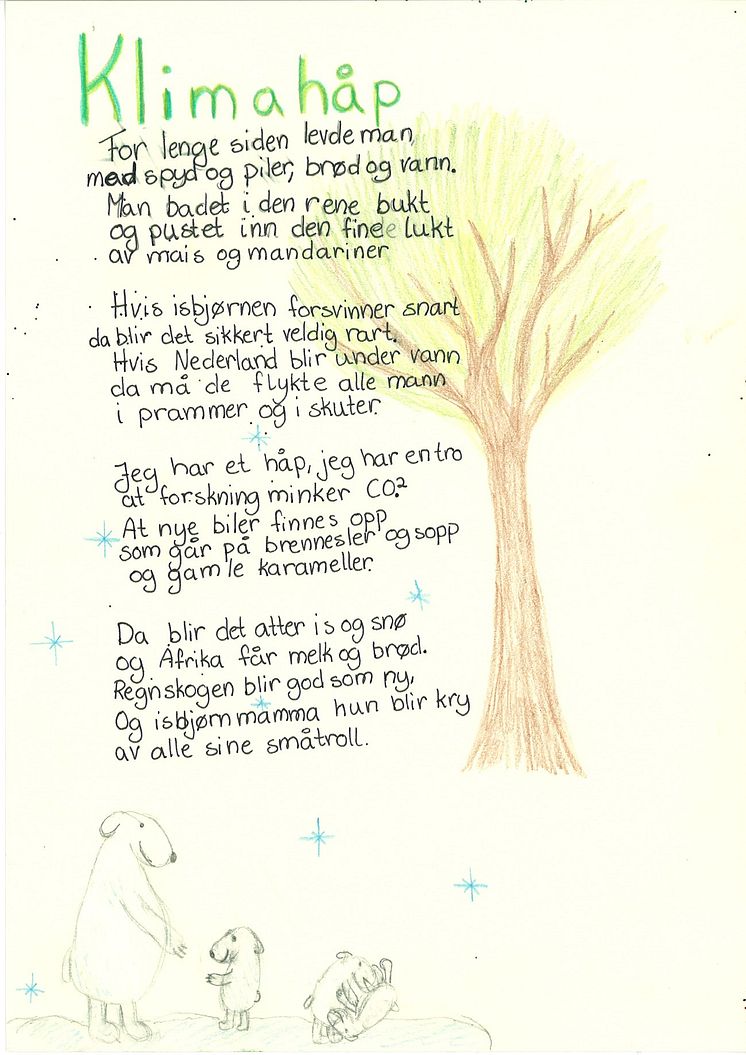 Klimahåp
For lenge siden levde man,
med spyd og piler, brød og vann.
Man badet i den rene bukt
og pustet inn den fine lukt
av mais og mandariner
Hvis isbjørnen forsvinner snart
da blir det sikkert veldig rart.
Hvis Nederland blir under vann
da må de flykte alle mann
i prammer og i skuter.
Jeg har et håp, jeg har en tro
at forskning minker CO².
At nye biler finnes opp
som går på brennesler og sopp
og gamle karameller.
Da blir det atter is og snø
og Afrika får melk og brød.
Regnskogen blir god som ny,
Og isbjørnmamma hun blir kry
av alle sine småtroll.